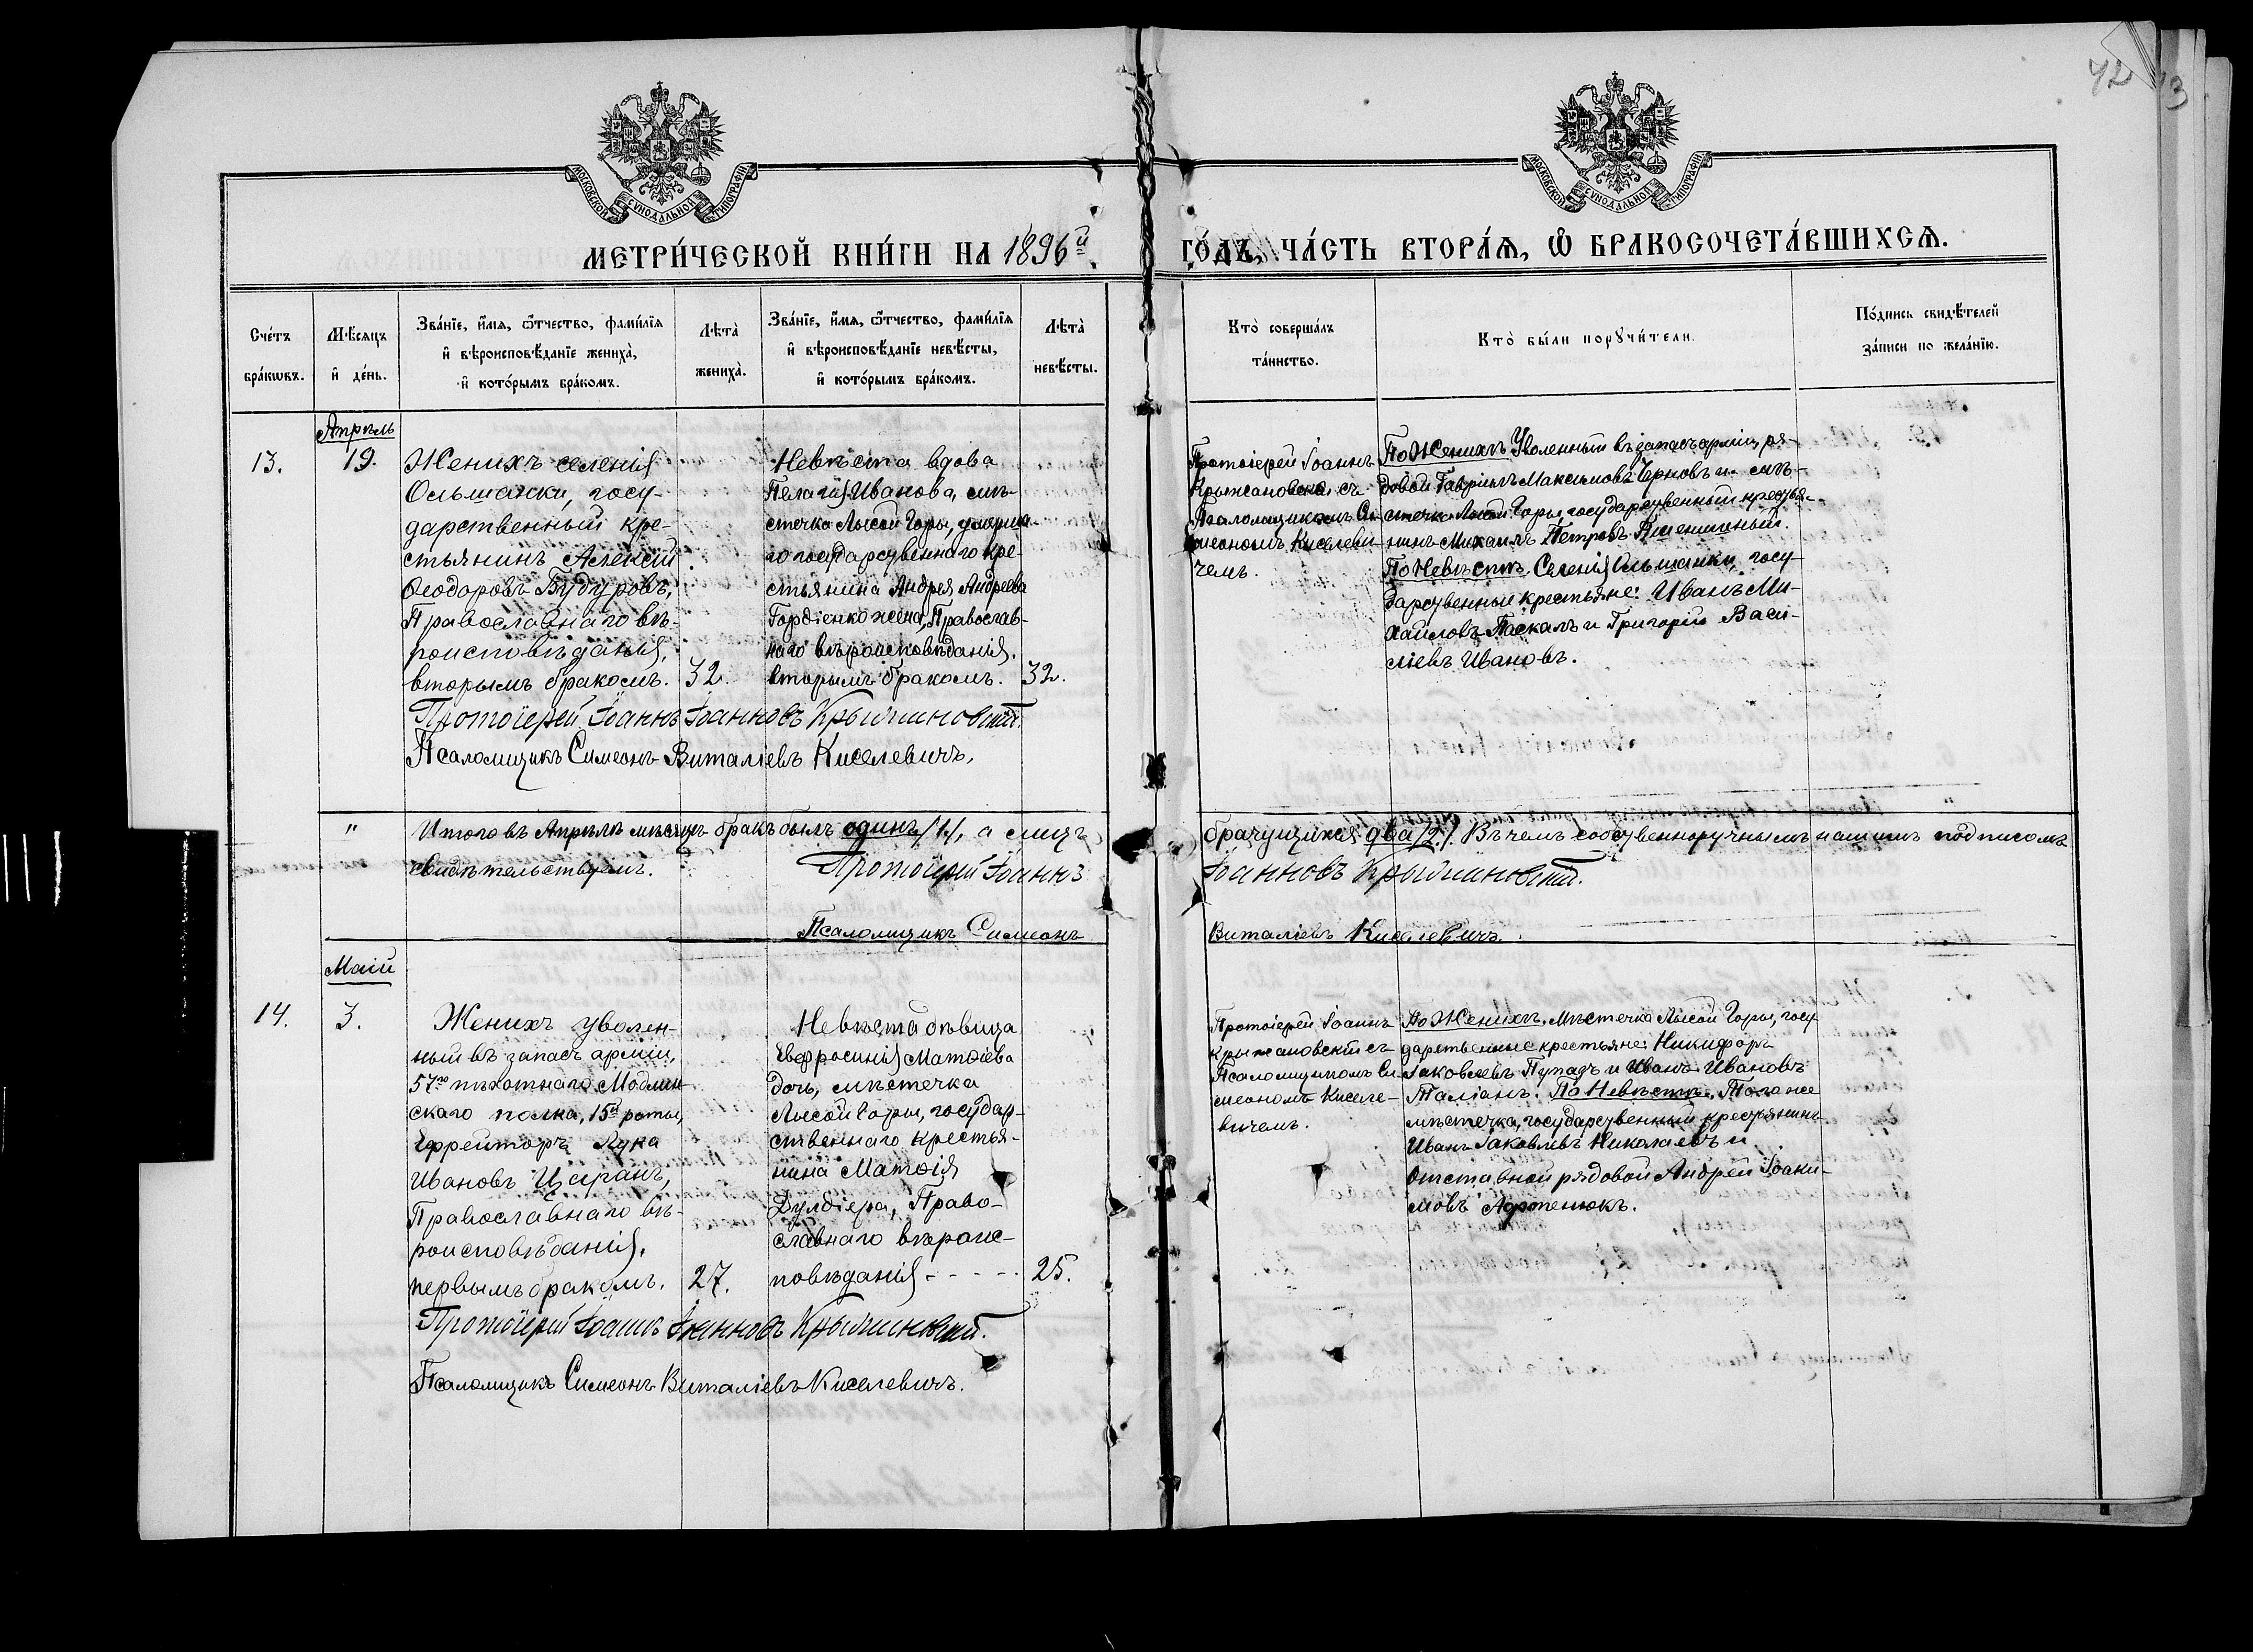 42
13
МОСКОВСКОЙ СУНОДАЛЬНОЙ ТИПОГРАФІИ
МОСКОВСКОЙ СУНОДАЛЬНОЙ ТИПОГРАФІИ
МЕТРИ́ЧЕСКОЙ КНИ́ГИ НА 1896й
ГО́ДЪ, ЧА́СТЬ ВТОРА́Я, Ѽ БРАКОСОЧЕТА́ВШИХСЯ.
Сче́тъ
бра́кѡвъ.
Мѣ́сяцъ
и҆ де́нь.
Зва́нїе, и҆́мя, ѻ҆́тчество, фами́лїя
и҆ вѣроисповѣ́данїе жениха̀,
и҆ кото́рымъ бра́комъ.
Лѣта̀
жениха̀.
Зва́нїе, и҆́мя, ѻ҆́тчество, фами́лїя
и҆ вѣроисповѣ́данїе невѣ́сты,
и҆ кото́рымъ бра́комъ.
Лѣта̀
невѣ́сты.
Кто̀ соверша́лъ
та́инство.
Кто̀ бы́ли порꙋчи́тели.
По́дписи свидѣ́телей
за́писи по жела́нїю.
Апрѣль
13.
19.
Женихъ селенія
Ольшанки, госу-
дарственный кре-
стьянинъ Алексій
Ѳеодоровъ Будуровъ,
Православнаго вѣ-
роисповѣданія,
вторымъ бракомъ.
32.
Невѣста вдова
Пелагія Иванова, мѣ-
стечка Лысой Горы, умерша-
го государственнаго кре-
стьянина Андрея Андреева
Гордіенко жена, Православ-
наго вѣроисповѣданія.
вторымъ бракомъ.
32.
Протоіерей Іоаннъ
Крыжановскій съ
Псаломщикомъ Си-
меономъ Киселеви-
чемъ.
По Женихѣ Уволенный въ запасъ арміи, ря-
довой Гавріилъ Максимовъ Черновъ и мѣ-
стечка Лысой Горы государственный крестья-
нинъ Михаилъ Петровъ Пшеничный.
По Невѣстѣ, Селенія Ольшанки, госу-
дарственные крестьяне: Иванъ Ми-
хайловъ Паскалъ и Григорій Васи-
ліевъ Ивановъ.
Протоіерей Іоаннъ Іоанновъ Крыжановскій.
Псаломщикъ Симеонъ Виталіевъ Киселевичъ.
"
Итого въ Апрѣлѣ мѣсяцѣ бракъ былъ одинъ /1./, а лицъ
брачущихся два /2./. Въ чемъ собственноручнымъ нашимъ подписомъ
свидѣтельствуемъ.
Протоіерей Іоаннъ
Іоанновъ Крыжановскій.
Псаломщикъ Симеонъ
Виталіевъ Киселевичъ.
Маій
14.
3.
Женихъ уволен-
ный въ запасъ арміи,
57го пѣхотнаго Модлин-
скаго полка, 15й роты,
Ефрейторъ Лука
Ивановъ Царанъ,
Православнаго вѣ-
роисповѣданія,
первымъ бракомъ.
27.
Невѣста дѣвица
Евфросинія Матѳіева
дочь, мѣстечка
Лысой Горы, государ-
ственнаго крестья-
нина Матѳія
Дулдіера, Право-
славнаго вѣроис-
повѣданія - - - - -
25.
Протоіерей Іоаннъ
Крыжановскій съ
Псаломщикомъ Си-
меономъ Киселе-
вичемъ.
По Женихѣ, Мѣстечка Лысой Горы, госу-
дарственные крестьяне: Никифоръ
Іаковлевъ и Иванъ Ивановъ
Таліанъ. По Невѣстѣ, Того же
мѣстечка, государственный крестьянинъ
Иванъ Іаковлевъ Николаевъ и
Отставной рядовой Андрей Іоаки-
мовъ
Протоіерей Іоаннъ Іоанновъ Крыжановскій.
Псаломщикъ Симеонъ Виталіевъ Киселевичъ.